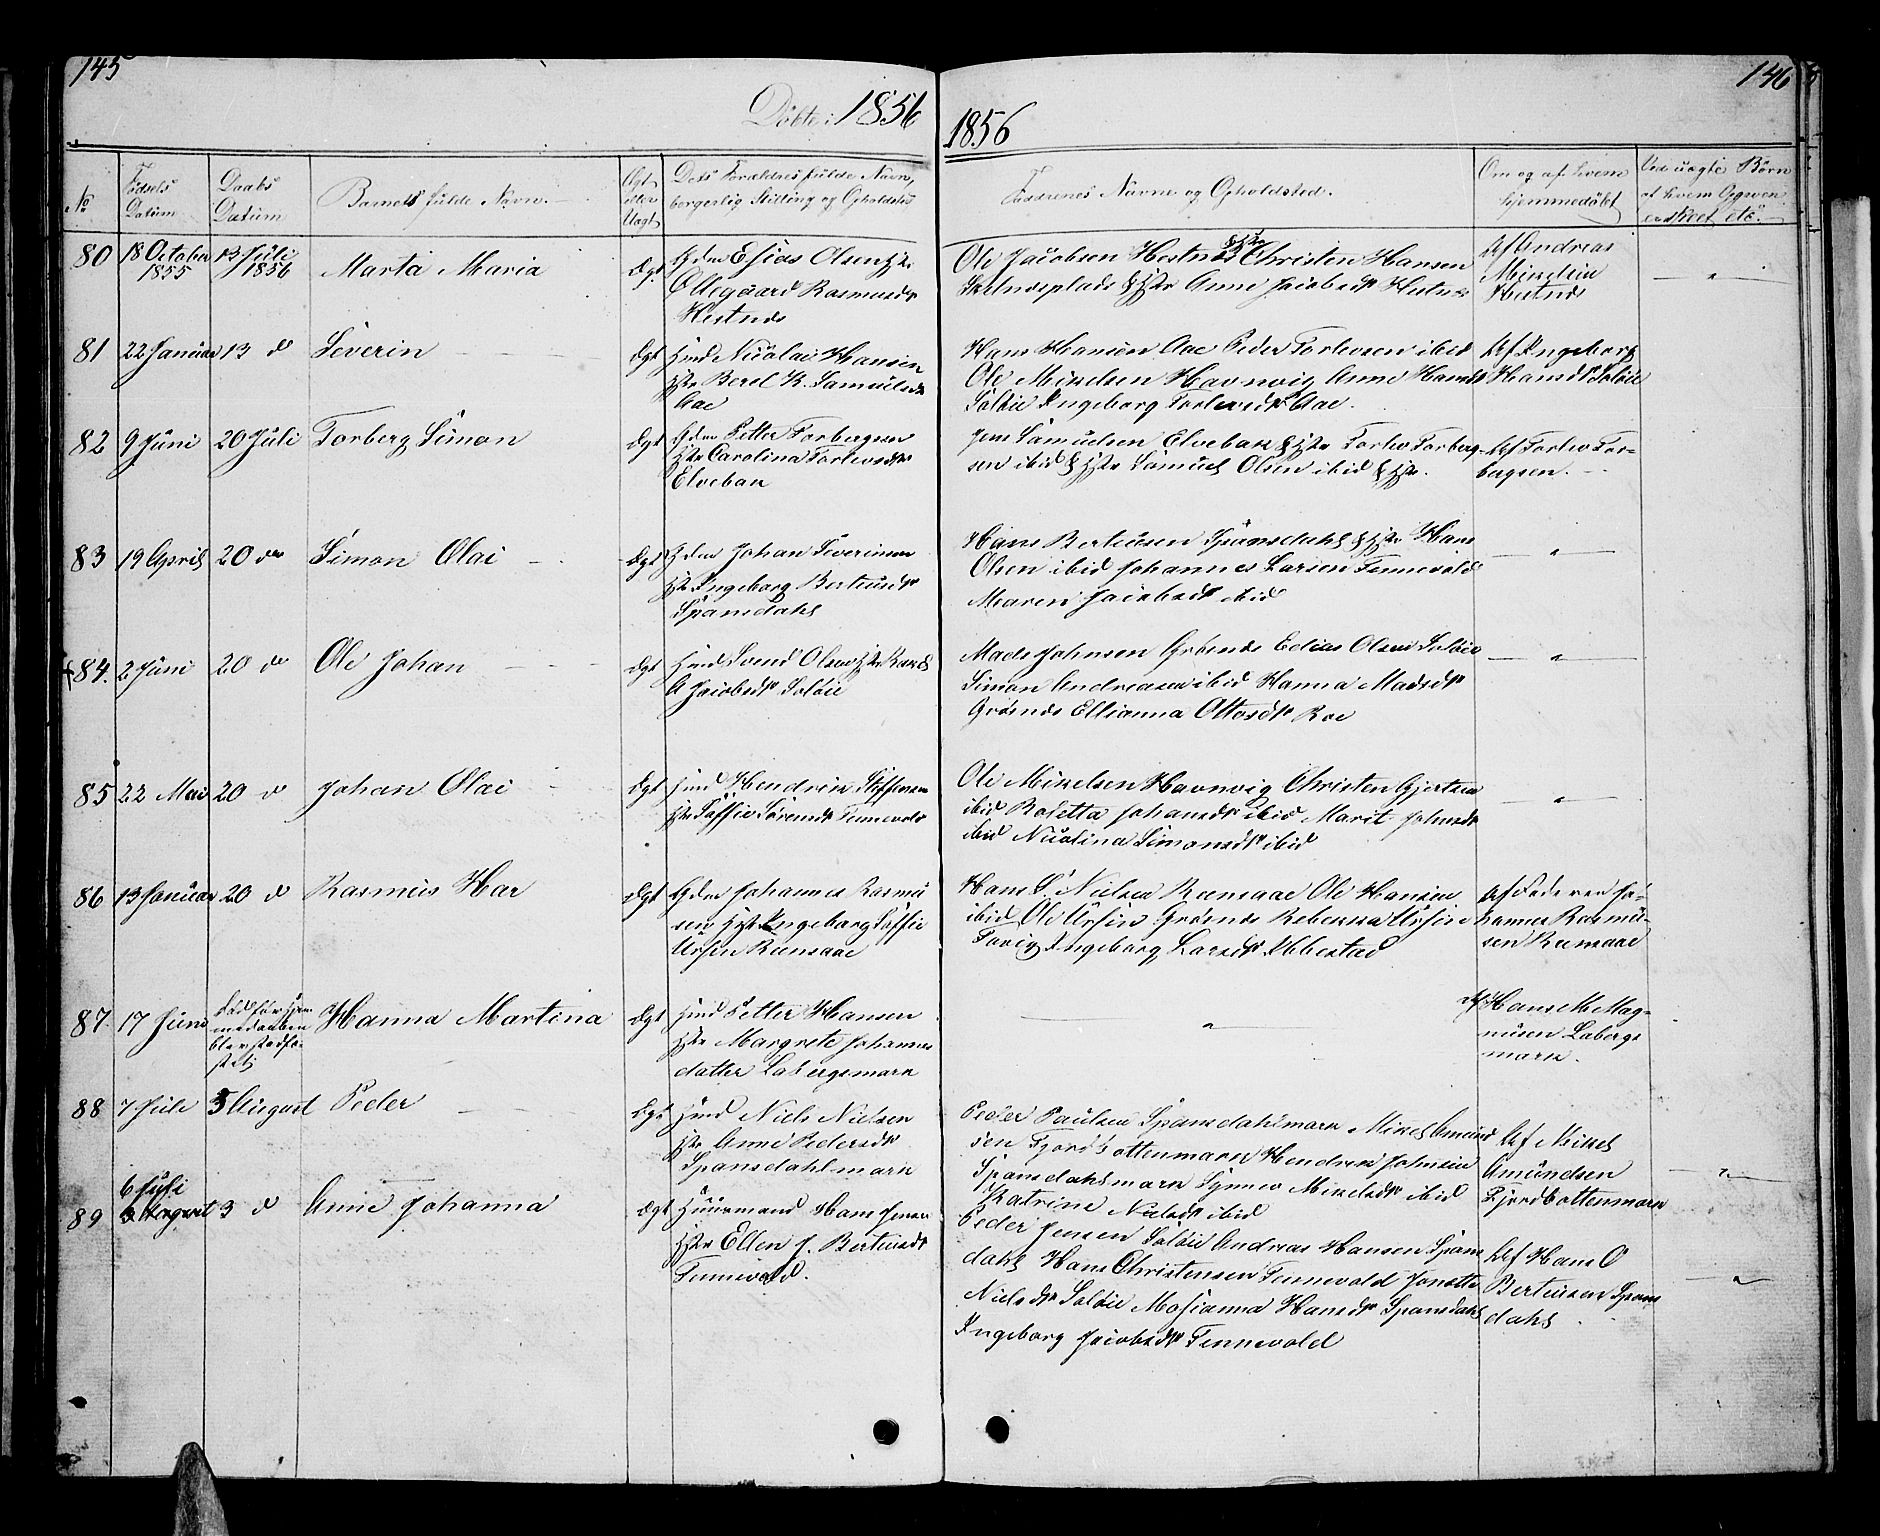 145
Döbte i 1856
No
Födsels Datum
Daabs Datum
Barnets fulde Navn.
Ægt eller Uægt
Dets Forældres fulde Navn, borgerlig Stilling og Opholdsted
80
18 October 1855
13 Juli 1856
Marta Maria
Ægt
Gdm Esias Olsen Hst.
Ollegaard Rasmusdr
Hestnes
81
22 Januar
13 d
Severin
Ægt
Hmd Nicolai Hansen
Hst Berel K. Samuelsdr
Aae
82
9 Juni
20 Juli
Torberg Simon
Ægt
Gdm Petter Torbergsen
Hst Carolina Torlevsdr
Elvebak
83
19 April
20 do
Simon Olai
Ægt
Gdm Johan Severinsen
Hst Ingeborg Berteusdr
Spansdahl
84.
2 Juni
20 do
Ole Johan
Ægt
Hmd Svend Olsen Hst
A Jacobsdr Soløie
85
22 Mai
20 d
Johan Olai
Ægt
Hmd Hendrik Steffensen
Hst Soffie Sörensdr Tennevold
86
13 Januar
20 d
Rasmus Har
Ægt
Gdm Johannes Rasmu
sen Hst Ingeborg Soffie
Ursin Rensaae
87.
17 Juni
Hanna Martina
Ægt
Hmd Petter Hansen
Hst Margrete Johannes
datter Labergsmark
88
7 Juli
3 August
Peder
Ægt
Hmd Niels Nielsen
Hst Anne Pedersdr
Spansdahlmark
89
6 Juli
3 August
3 d
Anne Johanna
Ægt
Huusmand Hans Jensen
Hst Ellen J. Berteusdr
Tennevold.
146
1856
Faddernes Navne og Opholdsted.
Om og af hvem hjemmedöbt
Ved uægte Börn af hvem Opgiven er skeet etc.
Ole Jacobsen Hestnes & Hst Christen Hansen
& Hst Anne Jacobsdr Hestnes
Af Andreas
Mikelsen
Hestnes
Hans Hansen Aae Peder Torlevsen ibid
Ole Mikelsen Havnvig Anne Hansdr
Soløie Ingeborg Torlevsdr Aae.
Af Ingeborg
Hansdr Soløie
Jens Samuelsen Elvebak & Hst Torlev Torberg-
sen ibid & Hst Samuel Olsen ibid & Hst.
Af Torlev Tor-
bergsen.
Hans Berteusen Spansdahl & Hst Hans
Olsen ibid Johannes Larsen Tennevold
Maren Jacobsdr ibid
Mads Johnsen Grøsnes Edias Olsen Soløie
Simon Andreasen ibid Hanna Madsdr
Grøsnes Ellianna Ottosdr Roe
Ole Mikelsen Havnvig Christen Gjertsen
ibid Rosetta Johansdr ibid Marit Johnsdr
ibid Nicolina Simonsdr ibid
Hans S. Nielsen Rensaae Ole Hansen
ibid Ole Ursin Grøsnes Rebekka Ursin
Ingeborg Larsdr Ibbestad
Af Faderen Jo-
hannes Rasmu-
sen Rensaae
Af Hans M Mag-
nusen Labergs
mark.
Peder Paulsen Spansdahlmark Mikel Amund
sen Fjordbottenmark Hendrik Johnsen
Spansdahlmark Synnev Mikelsdr ibid
Katrine Nielsdr ibid
Af Mikel
Amundsen
Fjordbottenmark
Peder Jensen Soløie Andreas Hansen Spans
dahl Hans Christensen Tennevold Jonette
Nielsdr Soløie Mosianna Hansdr Spansdahl
Ingeborg Jacobsdr Tennevold
Af Hans O
Berteusen Spans
dahl